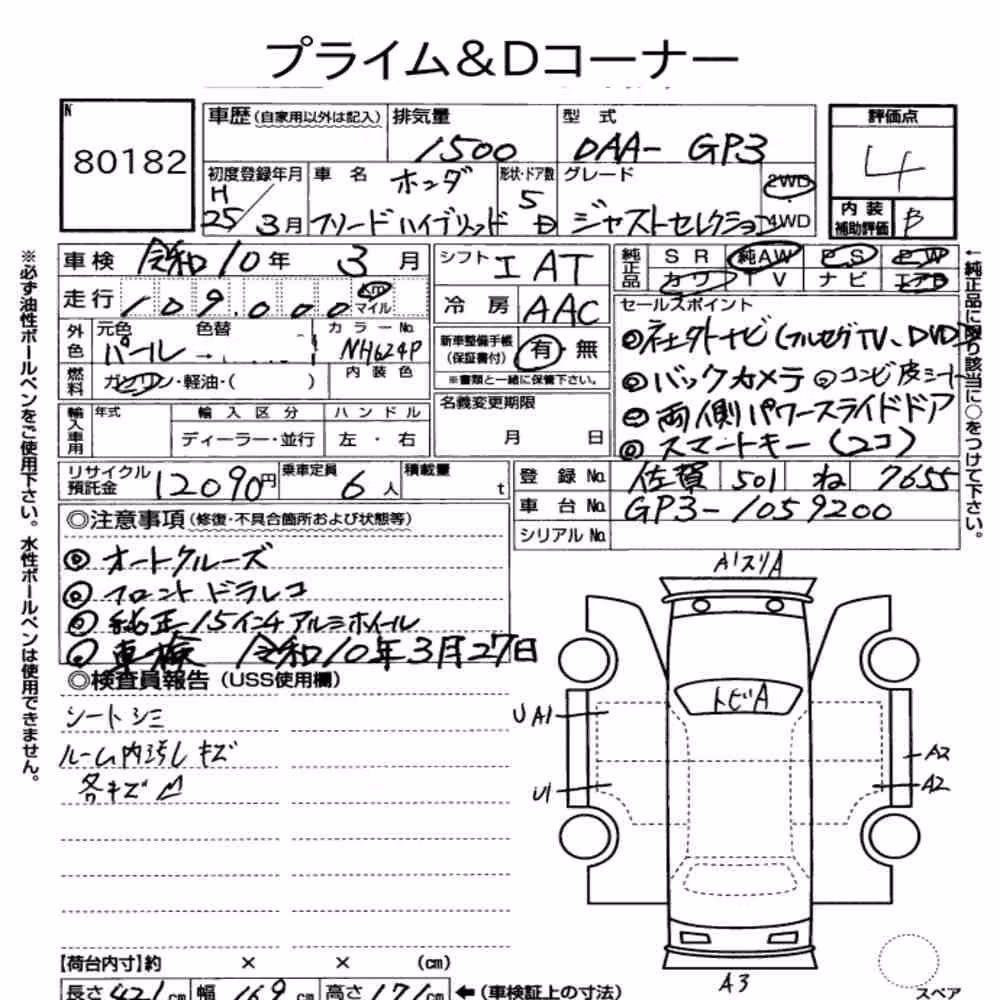 プライム&Dコーナー
N
80182
車歴(自家用以外は記入)
排気量
1500
型式
DAA- GP3
評価点
4
内装
補助評価
B
初度登録年月
H
25/3月
車名
ホンダ
フリードハイブリッド
形状・ドア数
5
D
グレード
ジャストセレクション
2WD
4WD
車検 令和10年 3月
シフト I AT
純正品
SR 純AW PS PW
カワ TV ナビ エアB
走行 109,000 km マイル
冷房 AAC
外色
元色
パール
色替
→
カラーNo.
NH624P
内装色
新車整備手帳
(保証書付)
有・無
※書類と一緒に保管下さい。
燃料 ガソリン・軽油・( )
輸入車用
年式
輸入区分
ディーラー・並行
ハンドル
左・右
名義変更期限
月 日
セールスポイント
◎社外ナビ(フルセグTV、DVD)
◎バックカメラ ◎コンビ皮シート
◎両側パワースライドドア
◎スマートキー(2コ)
リサイクル
預託金
12090円
乗車定員
6人
積載量
t
登録No. 佐賀 501 ね 7655
車台No. GP3-1059200
シリアルNo.
◎注意事項(修復・不具合箇所および状態等)
◎オートクルーズ
◎フロントドラレコ
◎純正15インチアルミホイール
◎車検 令和10年3月27日
◎検査員報告(USS使用欄)
シートシミ
ルーム内汚レ キズ
各キズ凹
※必ず油性ボールペンをご使用下さい。水性ボールペンは使用できません。
←純正品に限り該当に○をつけて下さい。
A1スリA
トビA
UA1
U1
A2
A2
A3
スペア
【荷台内寸】約 × × (cm)
長さ421cm 幅169cm 高さ171cm ←(車検証上の寸法)